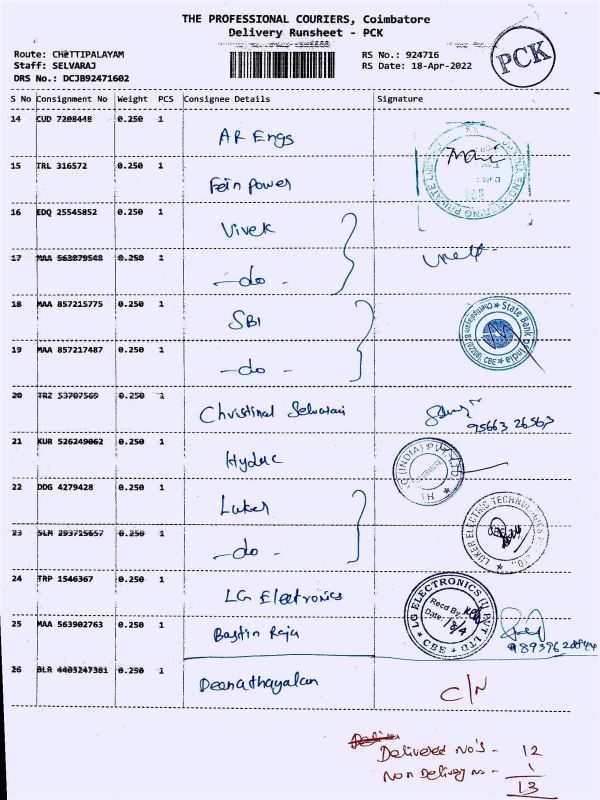 THE PROFESSIONAL COURIERS, Coimbatore
Delivery Runsheet - PCK
Route: CHETTIPALAYAM
RS No.: 924716
PCK
Staff: SELVARAJ
RS Date: 18-Apr-2022
DRS No.: DCJB92471602
S No Consignment No Weight PCS Consignee Details Signature
14 CUD 7208448 0.250 1 AR Engs
15 TRL 316572 0.250 1 Fein power
16 EDQ 25545852 0.250 1 Vivek
17 MAA 563879548 0.250 1 -do-
18 MAA 857215775 0.250 1 SBI
State Bank of India
19 MAA 857217487 0.250 1 -do-
20 TRZ 53707569 0.250 1 Christinal Selvarani
95663 26563
21 KUR 526249062 0.250 1 Hyduc
(INDIA) PVT LTD
22 DDG 4279428 0.250 1 Luker
LUKER ELECTRIC TECHNOLOGIES
23 SLR 293715657 0.250 1 -do-
24 TRP 1546367 0.250 1 LG Electronics
LG ELECTRONICS (I) PVT LTD
Recd By:
Date: 18/4
CBE
25 MAA 563902763 0.250 1 Bastin Raja
26 BLR 4403247381 0.250 1 Deenathayalan C/N
Delivered No's - 12
Non Delivery no - 1
13